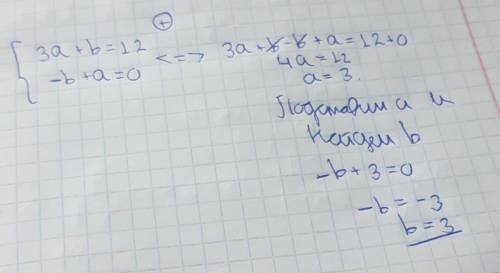 ⊕
{ 3a+b=12 <=> 3a+b-b+a=12+0
-b+a=0
4a=12
a=3.
Подставим a и
Найдем b
-b+3=0
-b=-3
b=3